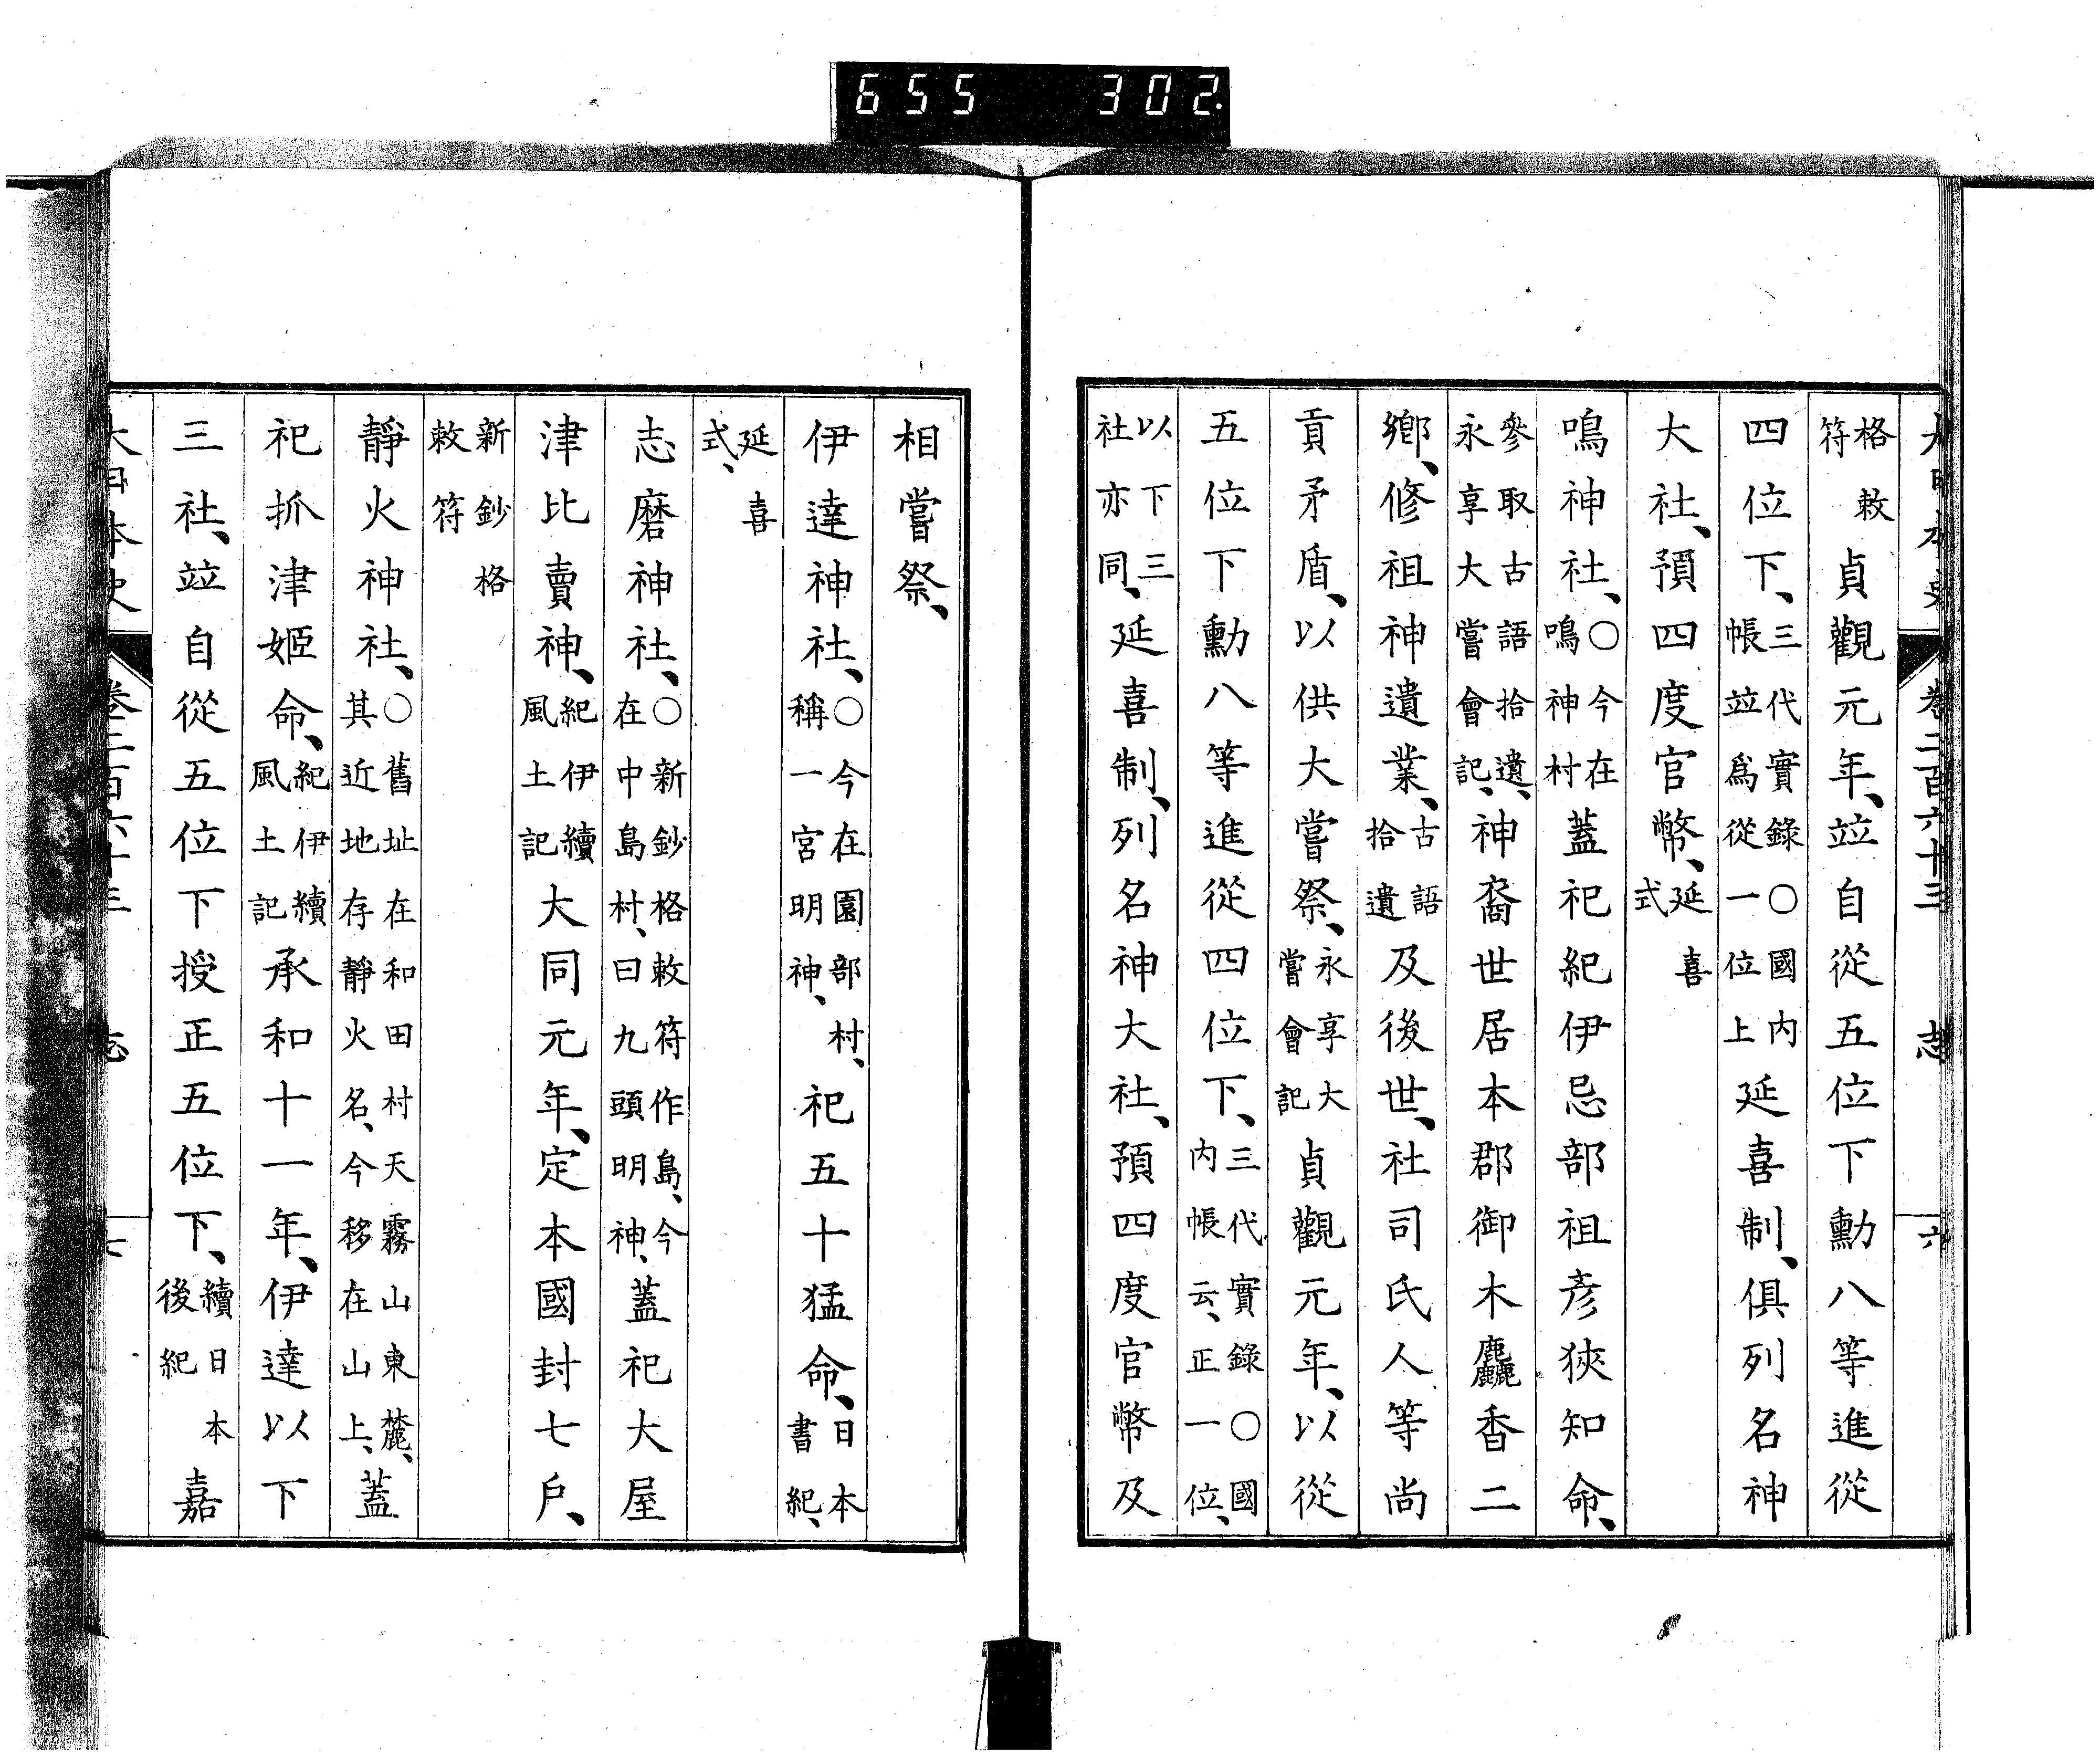 655 302
大日本史 卷二百六十三 志 六
格敕符貞觀元年、竝自從五位下勳八等進從
四位下、三代實錄○國内帳竝爲從一位上延喜制、俱列名神
大社、預四度官幣、延喜式
鳴神社、○今在鳴神村蓋祀紀伊忌部祖彥狹知命、
參取古語拾遺、永享大嘗會記、神裔世居本郡御木麤香二
鄉、修祖神遺業、古語拾遺及後世、社司氏人等尚
貢矛盾、以供大嘗祭、永享大嘗會記貞觀元年、以從
五位下勳八等進從四位下、三代實錄○國内帳云、正一位、
以下三社亦同、延喜制、列名神大社、預四度官幣及
相嘗祭、
伊達神社、○今在園部村、稱一宮明神、祀五十猛命、日本書紀、
延喜式、
志磨神社、○新鈔格敕符作島、今在中島村、曰九頭明神、蓋祀大屋
津比賣神、紀伊續風土記大同元年、定本國封七戶、
新鈔格敕符
靜火神社、○舊址在和田村天霧山東麓、其近地存靜火名、今移在山上、蓋
祀抓津姬命、紀伊續風土記承和十一年、伊達以下
三社、竝自從五位下授正五位下、續日本後紀嘉
大日本史 卷二百六十三 志 七